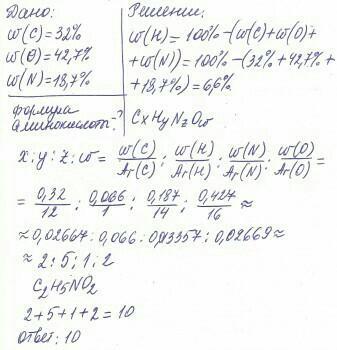 Дано:
w(C)=32%
w(O)=42,7%
w(N)=18,7%
формула
аминокислоты-?
Решение:
w(H)=100%-(w(C)+w(O)+
+w(N))=100%-(32%+42,7%+
+18,7%)=6,6%
CxHyNzOw
x:y:z:w=w(C)/Ar(C):w(H)/Ar(H):w(N)/Ar(N):w(O)/Ar(O)=
=0,32/12:0,066/1:0,187/14:0,427/16≈
≈0,02667:0,066:0,013357:0,02669≈
≈2:5:1:2
C2H5NO2
2+5+1+2=10
ответ:10